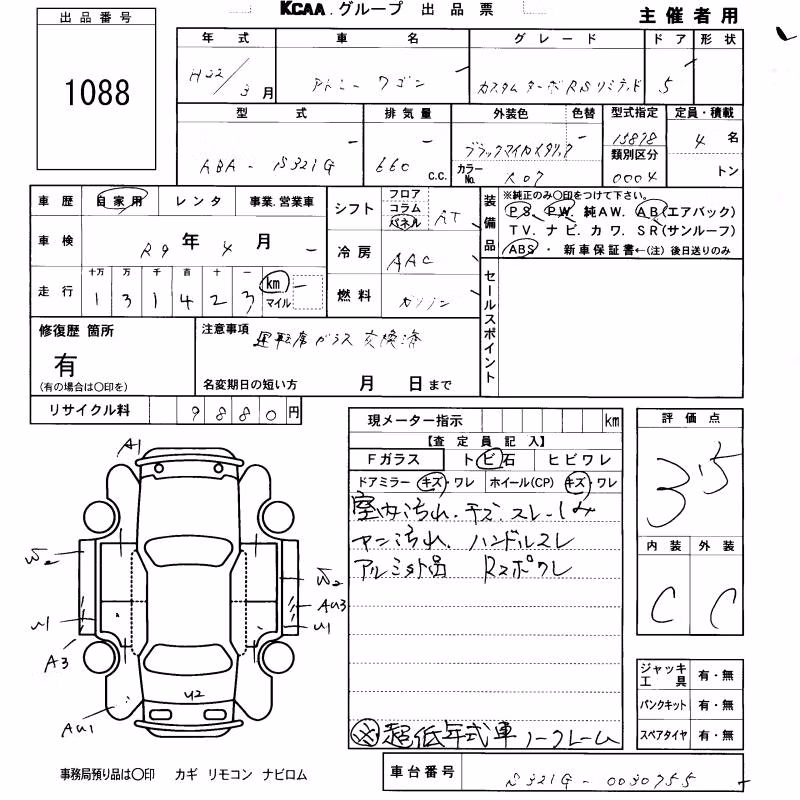 KCAA.グループ 出品票
主催者用
出品番号
1088
年式 車名 グレード ドア 形状
H22/3月 アトレーワゴン カスタムターボRSリミテッド 5
型式 排気量 外装色 色替 型式指定 定員・積載
ABA-S321G 660 c.c. ブラックマイカメタリック 15878 4名
カラーNo. X07 類別区分 0004 トン
車歴 自家用 レンタ 事業.営業車
シフト フロア コラム パネル AT
装備品 ※純正のみ〇印をつけて下さい。
PS. PW. 純AW. AB(エアバック)
TV. ナビ. カワ. SR(サンルーフ)
ABS・新車保証書←(注)後日送りのみ
車検 R9年4月
冷房 AAC
走行 十万 万 千 百 十 一
131423 km マイル
燃料 ガソリン
セールスポイント
修復歴 箇所
有
(有の場合は〇印を)
注意事項 運転席ガラス交換済
名変期日の短い方 月 日まで
リサイクル料 9880円
現メーター指示 km
【査定員記入】
Fガラス トビ石 ヒビワレ
ドアミラー キズ・ワレ ホイール(CP) キズ・ワレ
室内汚れ.キズ.スレ.しみ
ヤニ汚れ.ハンドルスレ
アルミ外品 Rスポワレ
※超低年式車 ノークレーム
評価点
3.5
内装 外装
C C
ジャッキ工具 有・無
パンクキット 有・無
スペアタイヤ 有・無
A1
W2
U1
A3
AU1
W2
AU3
U1
U2
事務局預り品は〇印 カギ リモコン ナビロム
車台番号 S321G-0030755